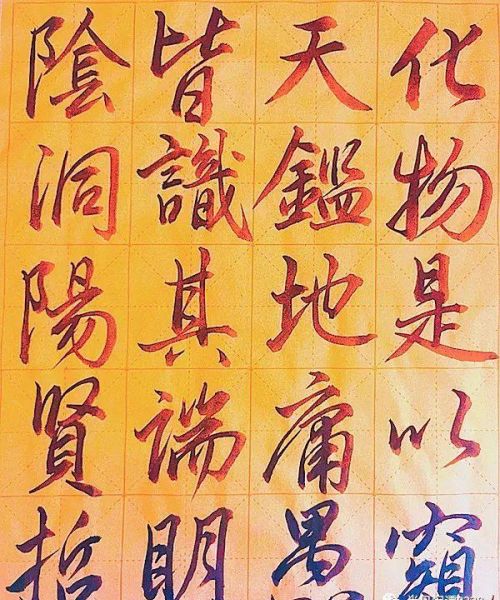 化物是以窺
天鑑地庸愚
皆識其端明
陰洞陽賢哲